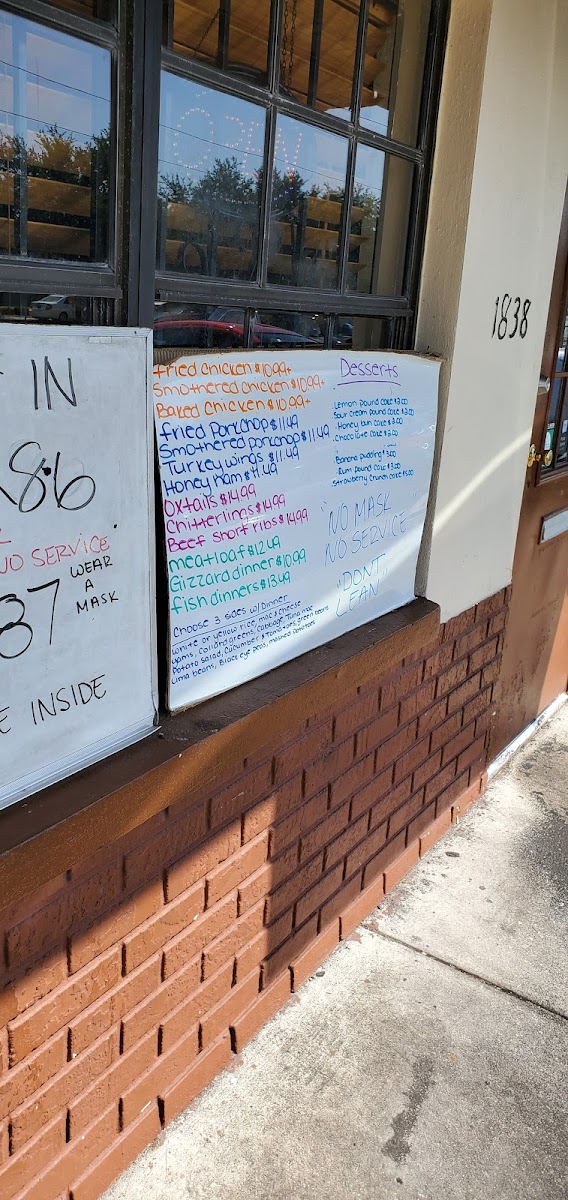 OPEN
IN
86
NO SERVICE
WEAR
A
MASK
87
INSIDE
Fried chicken $10.99+
Smothered chicken $10.99+
Baked chicken $10.99+
Fried Porkchop $11.49
Smothered porkchop $11.49
Turkey wings $11.49
Honey ham $11.49
Oxtails $14.99
Chitterlings $14.99
Beef short ribs $14.99
meatloaf $12.49
Gizzard dinner $10.99
fish dinners $13.49
Choose 3 sides w/ Dinner
white or yellow rice, mac & cheese
yams, Collard greens, cabbage, Tuna mac
Potato salad, Cucumber & Tomatoes, green beans
Lima beans, Black eye peas, mashed potatoes
Desserts
Lemon Pound cake $3.00
Sour cream pound cake $3.00
Honey bun cake $3.00
Chocolate cake $3.00
Banana pudding
Rum Pound cake $3.00
Strawberry Crunch cake
"NO MASK
NO SERVICE"
"DON'T
LEAN"
1838